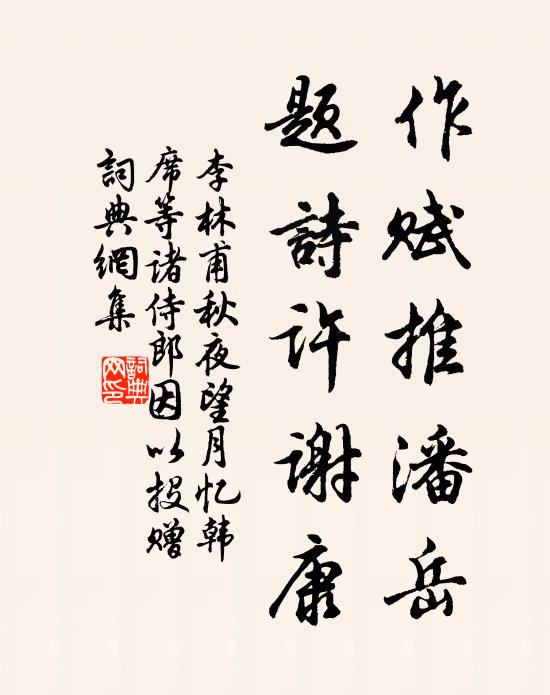 作赋推潘岳
题詩许谢康
李林甫秋夜望月忆韩
席等诸侍郎因以投赠
詞典網集
詞典网印